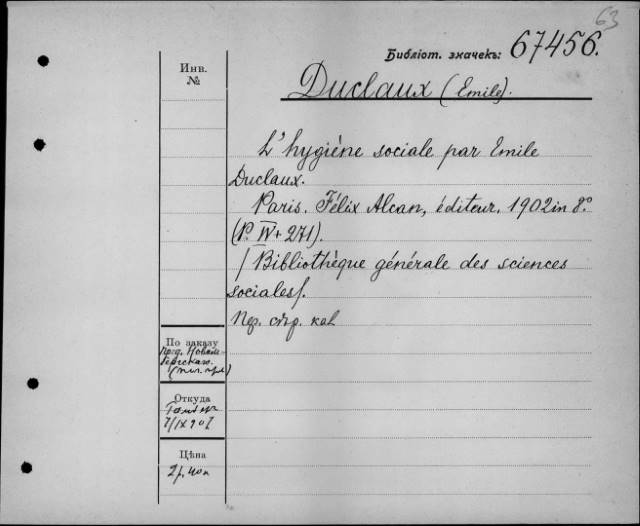 63
Библіот. значекъ: 67456.
Инв.
№
Duclaux (Emile).
L'hygiéne sociale par Emile
Duclaux.
Paris. Félix Alcan, éditeur. 1902 in 8°
(P. IV + 271).
/Bibliothèque générale des sciences
sociales/.
Пер. стр. кол
По заказу
Откуда
7/IX 907
Цѣна
2 р. 40 к